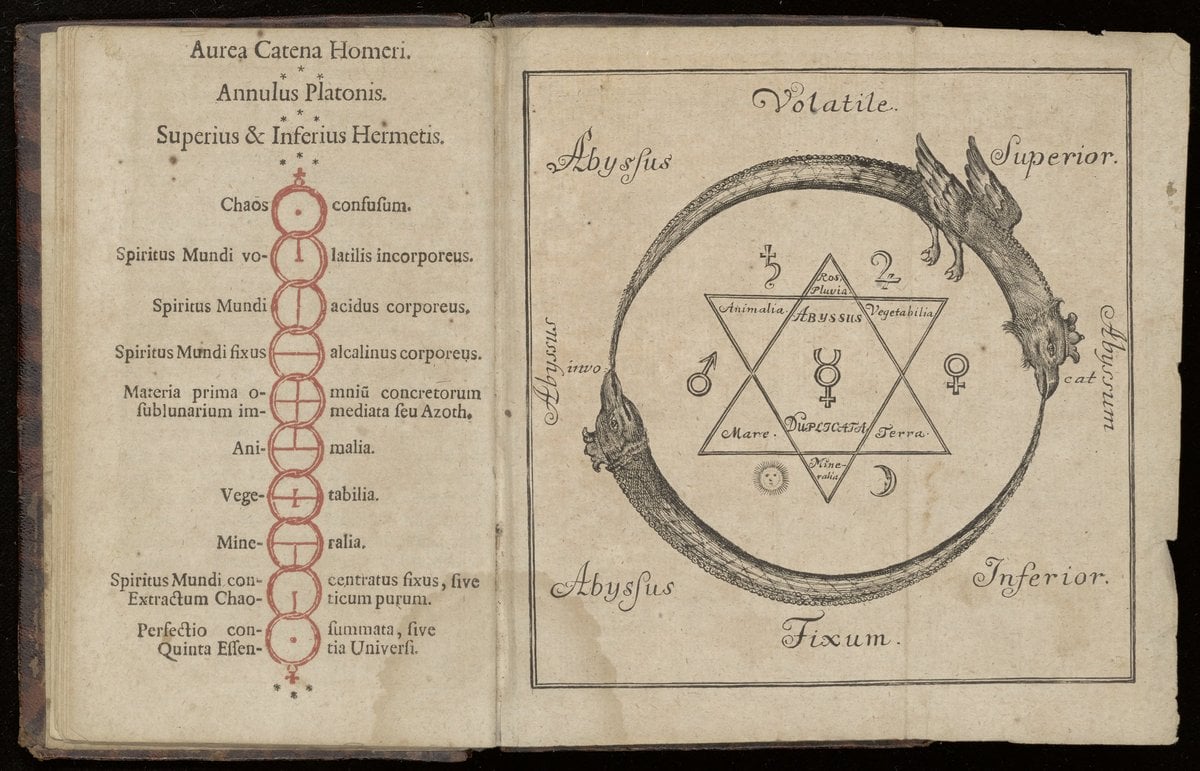 Aurea Catena Homeri.
Annulus Platonis.
Superius & Inferius Hermetis.
Chaos confusum.
Spiritus Mundi vo- latilis incorporeus.
Spiritus Mundi acidus corporeus,
Spiritus Mundi fixus alcalinus corporeus.
Materia prima o- mniũ concretorum
sublunarium im- mediata seu Azoth.
Ani- malia.
Vege- tabilia.
Mine- ralia.
Spiritus Mundi con- centratus fixus, sive
Extractum Chao- ticum purum.
Perfectio con- summata, sive
Quinta Essen- tia Universi.
Volatile.
Abyssus Superior.
Ros,
Pluvia
Animalia. ABYSSUS Vegetabilia
Abyssus invo cat Abyssum
Mare. DUPLICATA Terra.
Mine-
ralia
Abyssus Inferior.
Fixum.